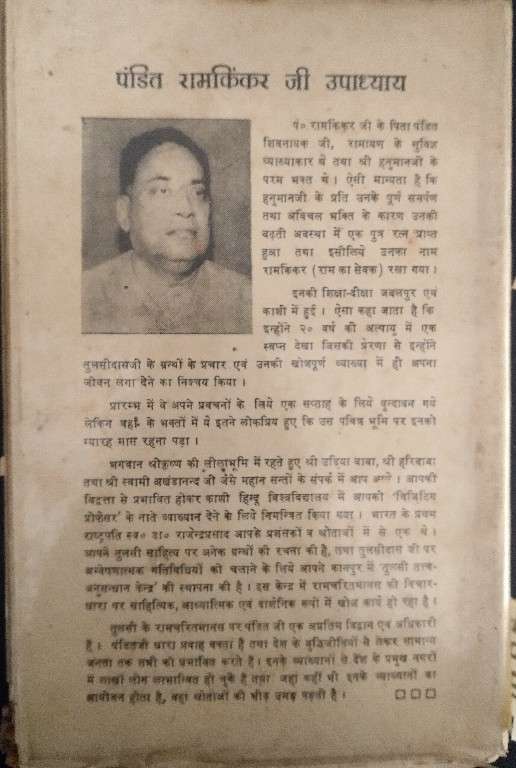 पंडित रामकिंकर जी उपाध्याय
पं० रामकिंकर जी के पिता पंडित
शिवनायक जी, रामायण के सुविज्ञ
व्याख्याकार थे तथा श्री हनुमानजी के
परम भक्त थे । ऐसी मान्यता है कि
हनुमानजी के प्रति उनके पूर्ण समर्पण
तथा अविचल भक्ति के कारण उनकी
बढ़ती अवस्था में एक पुत्र रत्न प्राप्त
हुआ तथा इसीलिये उनका नाम
रामकिंकर (राम का सेवक) रखा गया ।
इनकी शिक्षा-दीक्षा जबलपुर एवं
काशी में हुई । ऐसा कहा जाता है कि
इन्होंने २० वर्ष की अल्पायु में एक
स्वप्न देखा जिसकी प्रेरणा से इन्होंने
तुलसीदासजी के ग्रन्थों के प्रचार एवं उनकी खोजपूर्ण व्याख्या में ही अपना
जीवन लगा देने का निश्चय किया ।
प्रारम्भ में वे अपने प्रवचनों के लिये एक सप्ताह के लिये वृन्दावन गये
लेकिन वहाँ के भक्तों में ये इतने लोकप्रिय हुए कि उस पवित्र भूमि पर इनको
ग्यारह मास रहना पड़ा ।
भगवान श्रीकृष्ण की लीलाभूमि में रहते हुए श्री उड़िया बाबा, श्री हरिबाबा
तथा श्री स्वामी अखंडानन्द जी जैसे महान सन्तों के संपर्क में आप आये । आपकी
विद्वत्ता से प्रभावित होकर काशी हिन्दू विश्वविद्यालय में आपको 'विजिटिंग
प्रोफ़ेसर' के नाते व्याख्यान देने के लिये निमन्त्रित किया गया । भारत के प्रथम
राष्ट्रपति स्व० डा० राजेन्द्रप्रसाद आपके प्रशंसकों व श्रोताओं में से एक थे ।
आपने तुलसी साहित्य पर अनेक ग्रन्थों की रचना की है, तथा तुलसीदास जी पर
अन्वेषणात्मक गतिविधियों को चलाने के लिये आपने कानपुर में 'तुलसी तत्त्व-
अनुसन्धान केन्द्र' की स्थापना की है । इस केन्द्र में रामचरितमानस की विचार-
धारा पर साहित्यिक, आध्यात्मिक एवं दार्शनिक रूपों में खोज कार्य हो रहा है ।
तुलसी के रामचरितमानस पर पंडित जी एक अप्रतिम विद्वान एवं अधिकारी
हैं । पंडितजी धारा प्रवाह वक्ता हैं तथा देश के बुद्धिजीवियों से लेकर सामान्य
जनता तक सभी को प्रभावित करते हैं । इनके व्याख्यानों से देश के प्रमुख नगरों
में लाखों लोग लाभान्वित हो चुके हैं तथा जहां कहीं भी इनके व्याख्यानों का
आयोजन होता है, वहां श्रोताओं की भीड़ उमड़ पड़ती है ।